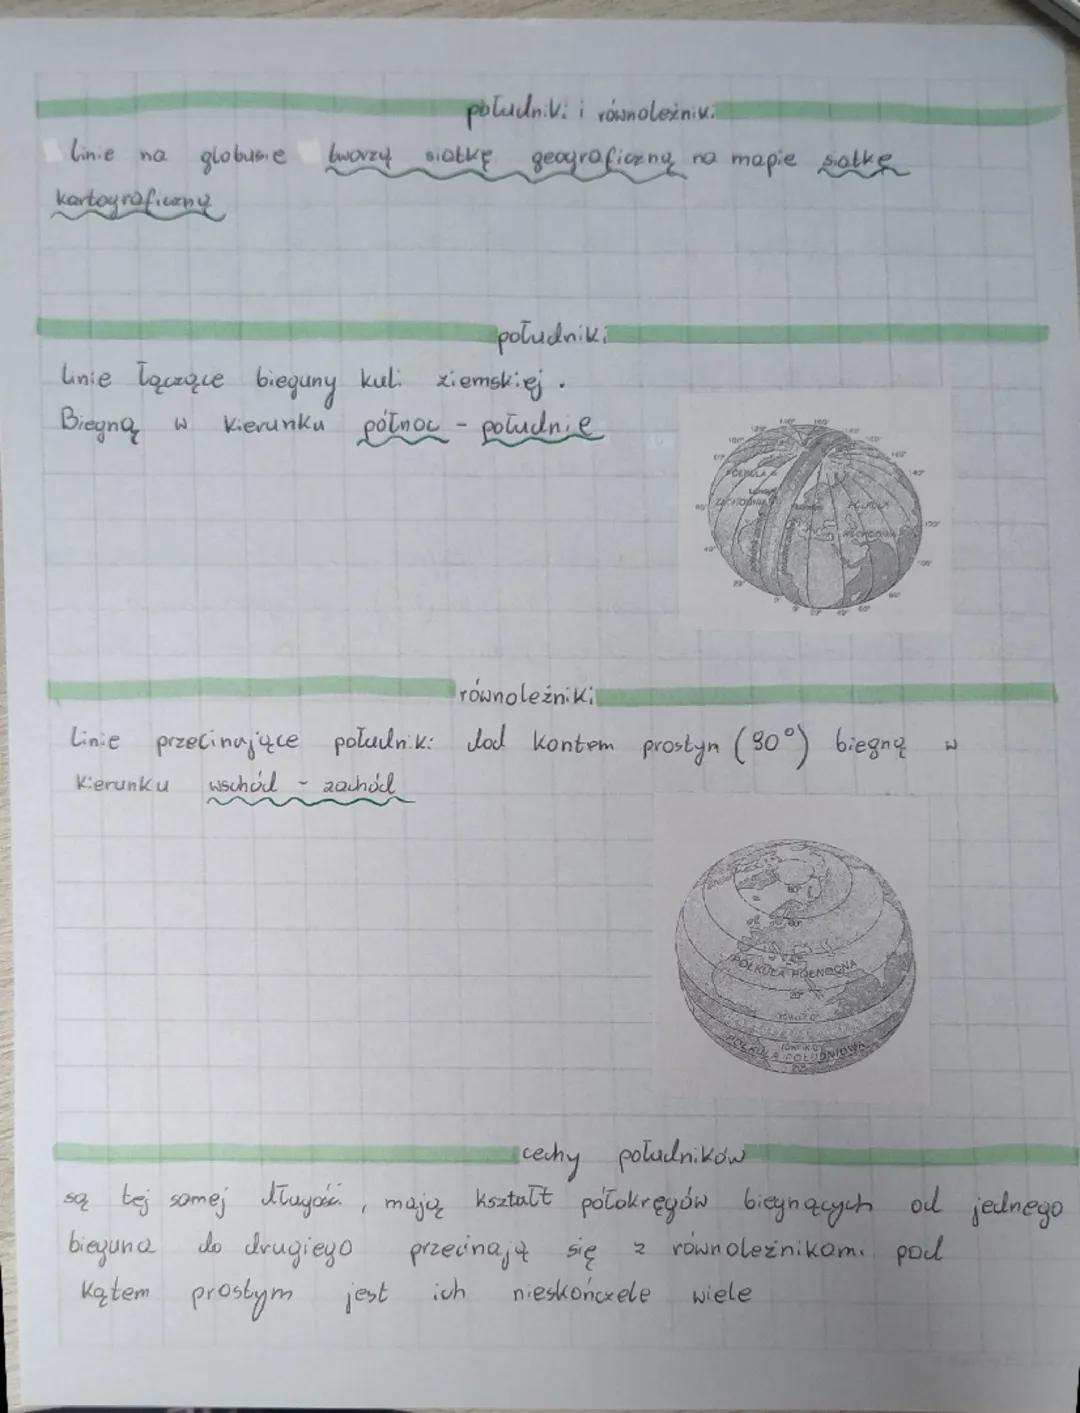 południki i równoleżniki
linie na globusie tworzą siatkę geograficzną na mapie siatkę
kartograficzną
południki
linie łączące bieguny kuli ziemskiej.
Biegną w kierunku północ - południe
PÓŁKULA
ZACHODNIA
PÓŁKULA
WSCHODNIA
równoleżniki
linie przecinające południki dod kontem prostyn (90°) biegną w
kierunku wschód - zachód
PÓŁKULA PÓŁNOCNA
20°
PÓŁKULA POŁUDNIOWA
cechy południków
są tej samej długości, mają kształt półokręgów biegnących od jednego
bieguna do drugiego przecinają się z równoleżnikami pod
kątem prostym jest ich nieskończele wiele